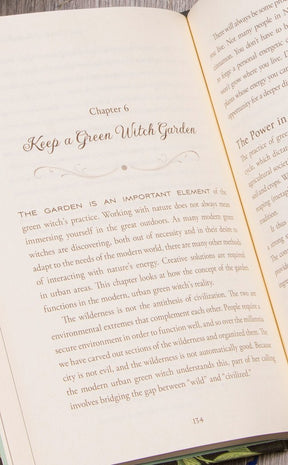 Chapter 6
Keep a Green Witch Garden
THE GARDEN IS AN IMPORTANT ELEMENT of the
green witch's practice. Working with nature does not always mean
immersing yourself in the great outdoors. As many modern green
witches are discovering, both out of necessity and in their desire to
adapt to the needs of the modern world, there are many other methods
of interacting with nature's energy. Creative solutions are required
in urban areas. This chapter looks at how the concept of the garden
functions in the modern, urban green witch's reality.
The wilderness is not the antithesis of civilization. The two are
environmental extremes that complement each other. People require a
secure environment in order to function well, and so over the millennia
we have carved out sections of the wilderness and organized them. The
city is not evil, and the wilderness is not automatically good. Because
the modern urban green witch understands this, part of her calling
involves bridging the gap between "wild" and "civilized."
134
There will always be some
you live. Not many people in
cinnamon. You don't have to
to forge a personal energetic
won't grow where you live.
plants whose energy you can
opportunity for a deeper
The Power in
The practice of green
cycle, which dictat
agricultural societ
soil and crops. W
reaping (metap
tradition
It is thus
a strong
with the